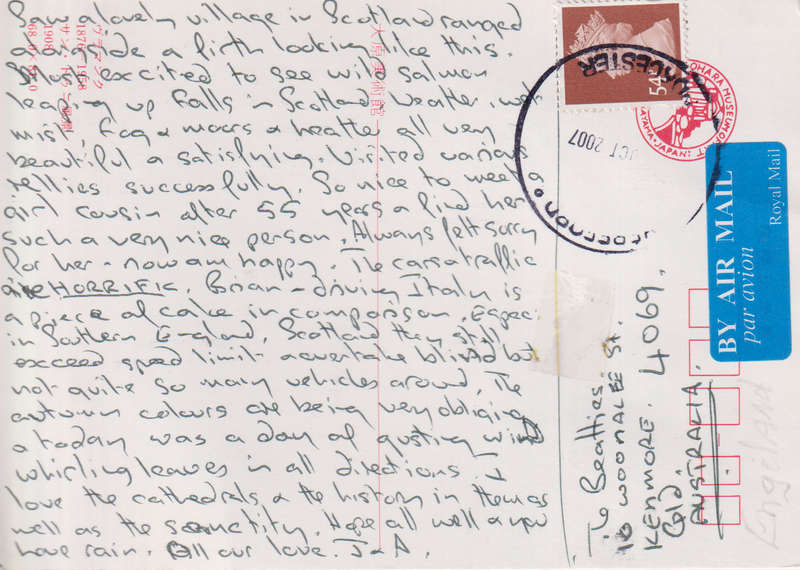 Saw a lovely village in Scotland ranged
alongside a firth looking like this.
Most excited to see wild salmon
leaping up falls in Scotland. Weather wet
mist, fog & moors & heather all very
beautiful & satisfying. Visited various
rellies successfully. So nice to meet a
girl cousin after 55 years & find her
such a very nice person. Always felt sorry
for her - now am happy. The cars & traffic
are HORRIFIC. Brian - driving Italy is
a piece of cake in comparison. Espec.
in Southern England. Scotland they still
exceed speed limit & overtake blind but
not quite so many vehicles around. The
autumn colours are being very obliging
& today was a day of gusting wind
whirling leaves in all directions. I
love the cathedrals & the history in them as
well as the sanctity. Hope all well & you
have rain. All our love. J & A.
大原美術館
1876-1958
To Beatties.
16 WOONALEE St.
KENMORE. 4069.
Qld.
AUSTRALIA.
BY AIR MAIL
par avion
Royal Mail
54
OCT 2007
OHARA MUSEUM OF ART
JAPAN
England